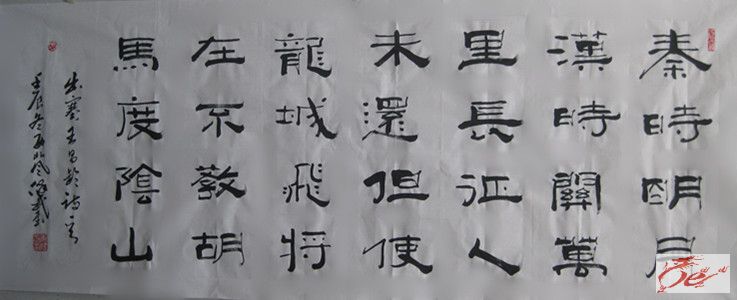 秦時明月
漢時關萬
里長征人
未還但使
龍城飛將
在不教胡
馬度陰山
出塞王昌齡詩
壬辰冬